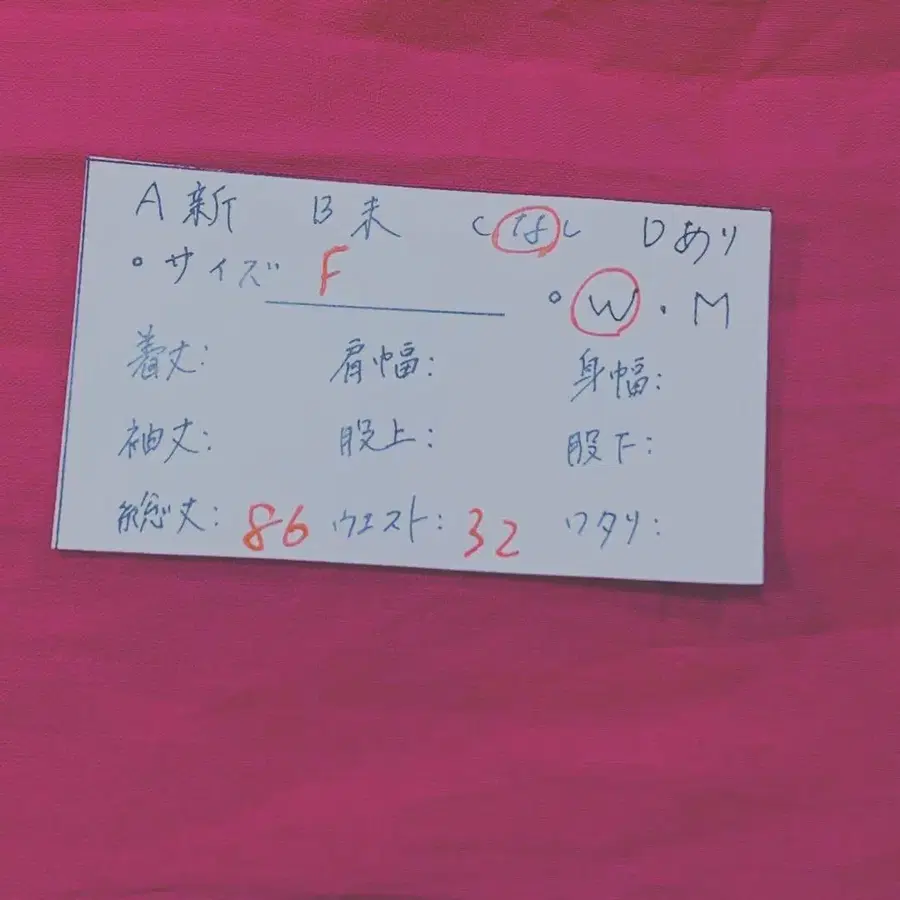 A新 B未 Cなし Dあり
°サイズ F °W・M
着丈: 肩幅: 身幅:
袖丈: 股上: 股下:
総丈: 86 ウエスト: 32 ワタリ: